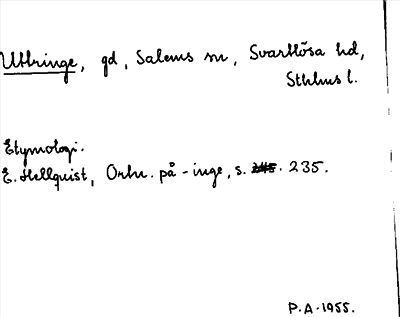 Uttringe, gd, Salems sn, Svartlösa hd,
Sthlms l.
Etymologi.
E. Hellquist, Ortn. på -inge, s. 235.
P.A. 1955.